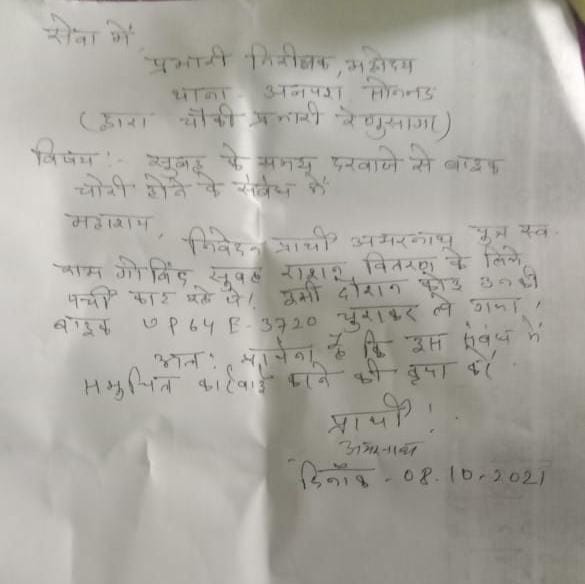 सेवा में,
प्रभारी निरीक्षक, महोदय
थाना - अनपरा सोनभद्र
(द्वारा चौकी प्रभारी रेणुसागर)
विषय :- सुबह के समय दरवाजे से बाइक
चोरी होने के संबंध में
महाशय,
निवेदन प्रार्थी अमरनाथ पुत्र स्व.
राम गोविंद सुबह राशन वितरण के लिये
पर्ची काट रहे थे। इसी दौरान कोई उनकी
बाइक UP64 E-3720 चुराकर ले गया।
अतः प्रार्थना है कि इस संबंध में
समुचित कार्रवाई करने की कृपा करें
प्रार्थी !
अमरनाथ
दिनाँक - 08.10.2021